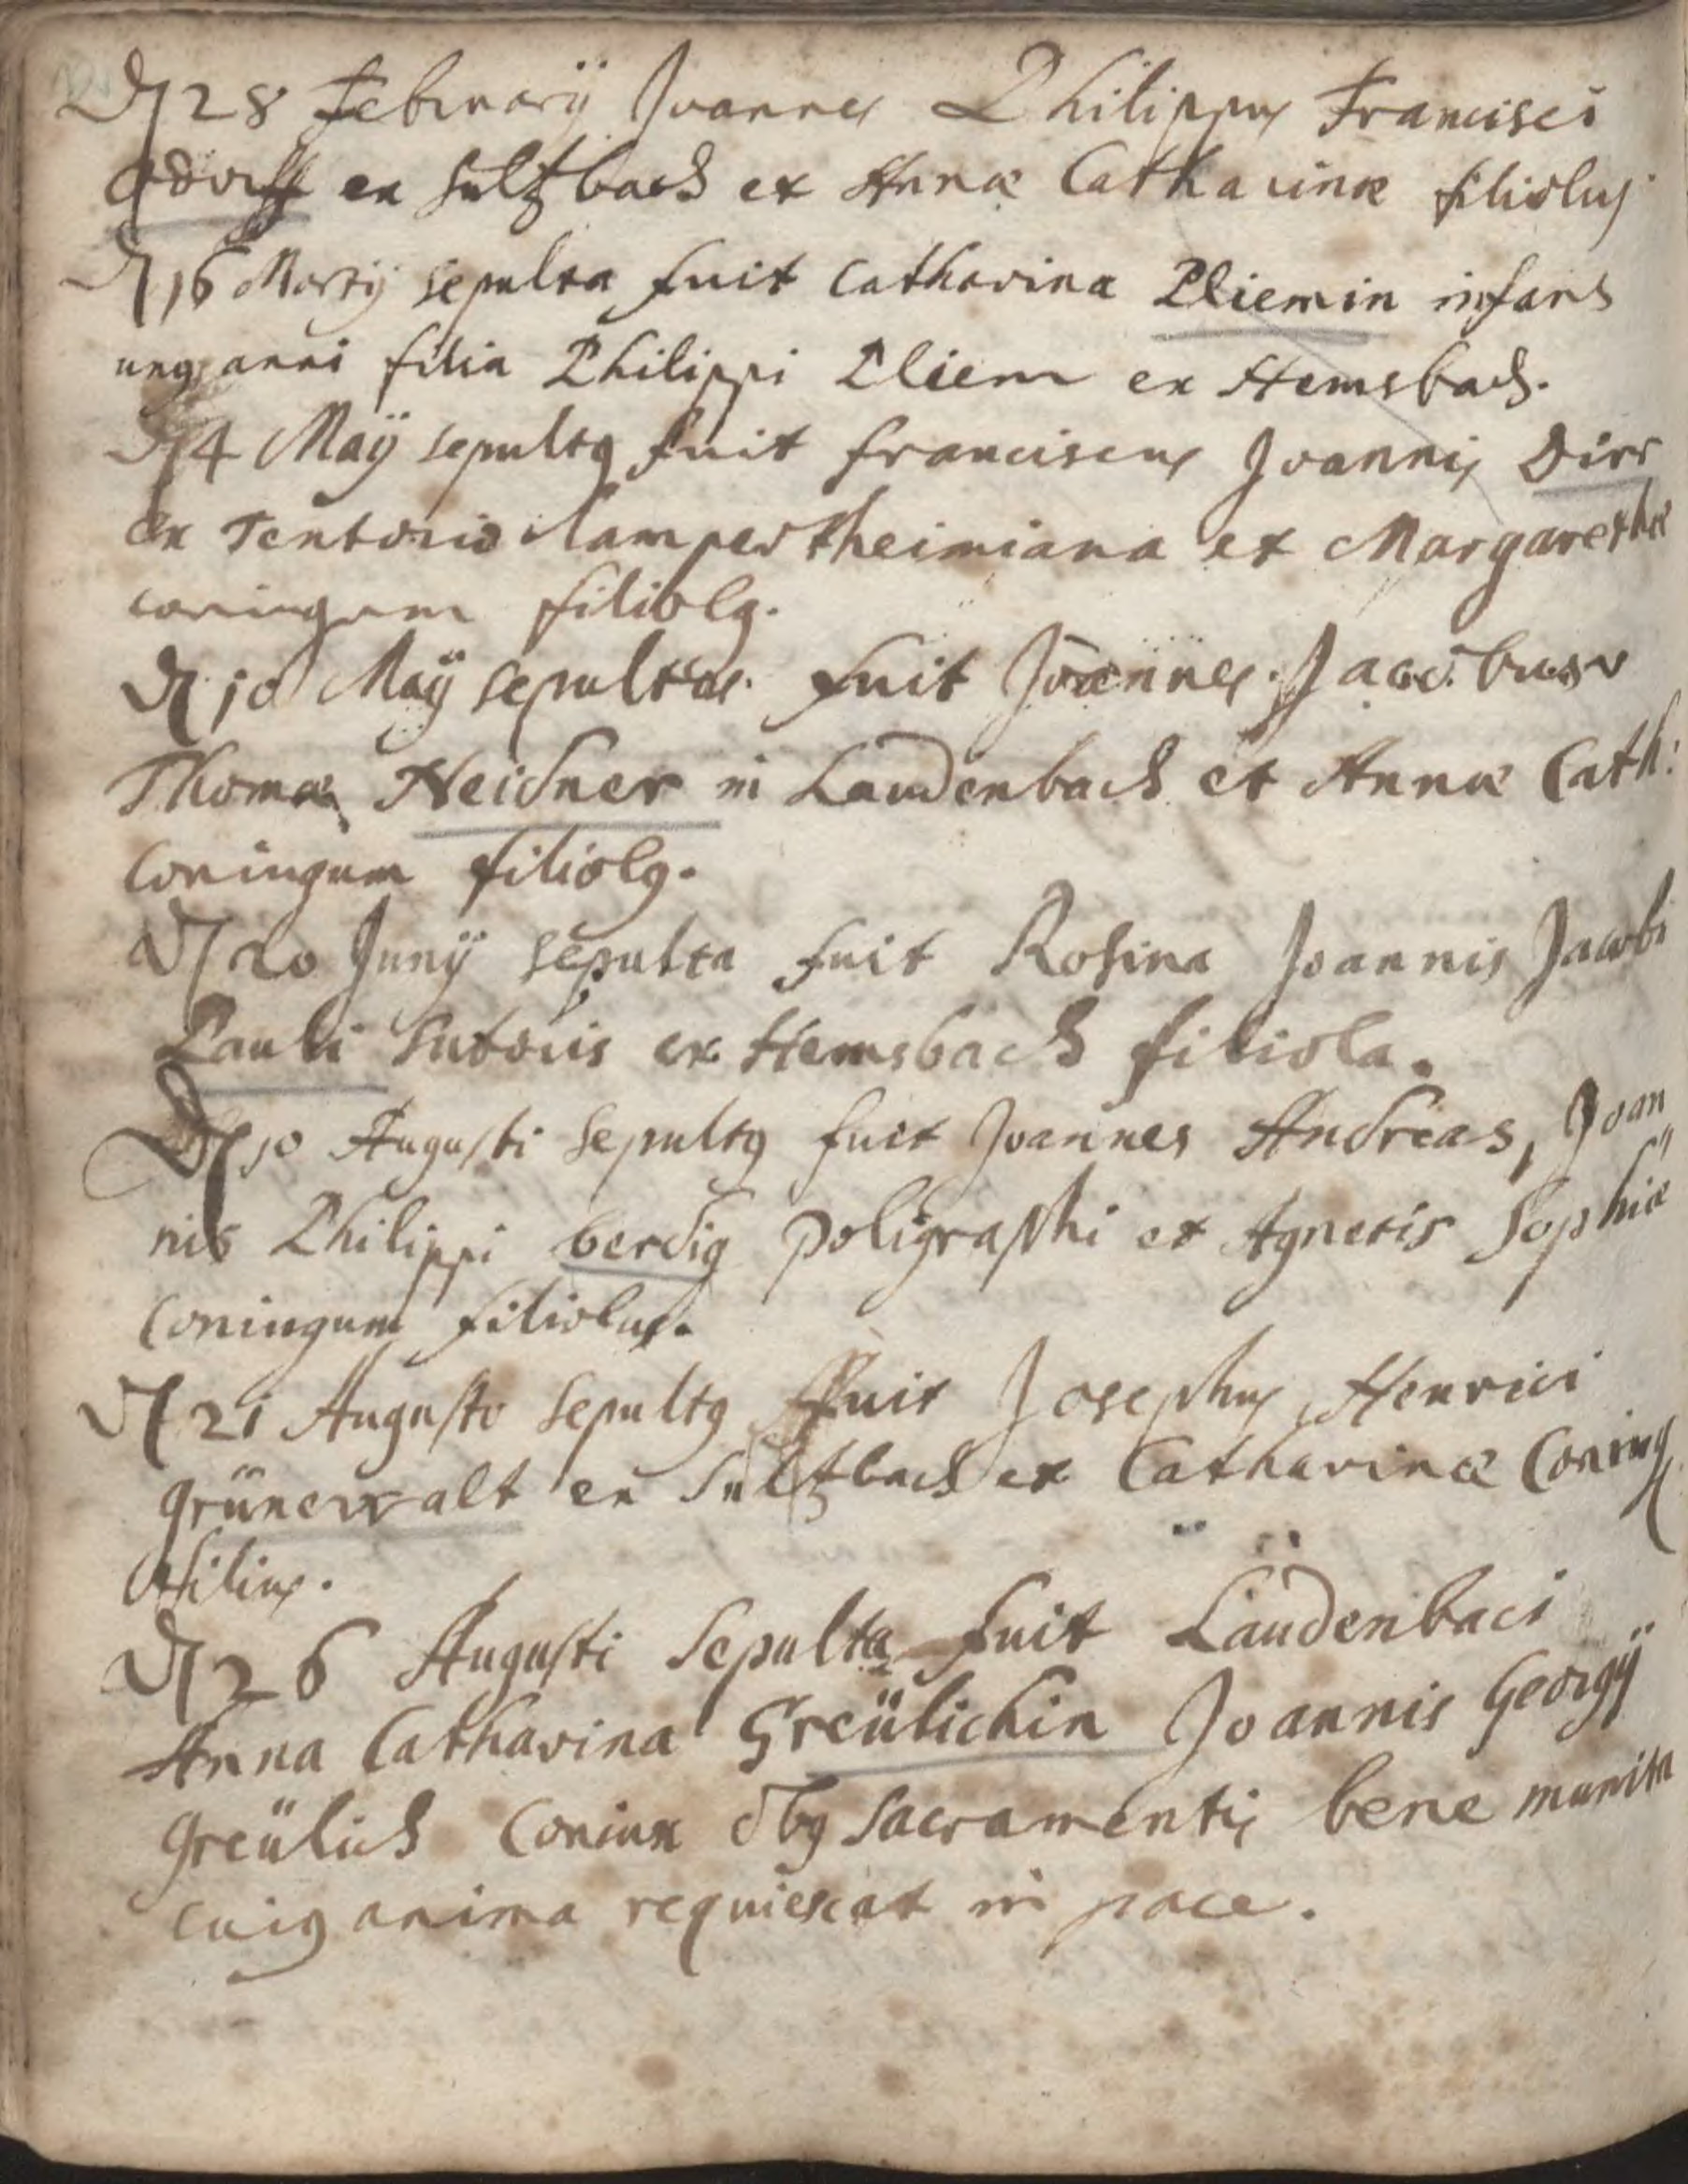 D 28 Februarÿ Joannes Philippus Francisci
Adorff ex Sultzbach et Annæ Catharinæ filiolus
D 16 Martÿ sepulta fuit Catharina Pliemin infans
unq anni filia Philippi Pliem ex Hemsbach.
D 4 Maÿ sepultq fuit Franciscus Joannis Dirr
ex Tentorio Lampertheimiana et Margarethæ
coniugum filiolq.
D 10 Maÿ sepultus fuit Joannes Jacobus
Thomæ Neidner in Laudenbach et Annæ Cath:
Coniugum filiolq.
D 20 Junÿ sepulta fuit Rosina Joannis Jacobi
Pauli Sutoris ex Hemsbach filiola.
D 10 Augusti sepultq fuit Joannes Andreas, Joan„
nis Philippi berdig poligraphi et Agnetis Sophiæ
Coniugum filiolus.
D 21 Augusto sepultq fuit Josephus Henrici
grünewalt ex Sultzbach et Catharinæ Coniug
filius.
D 26 Augusti Sepulta fuit Laudenbaci
Anna Catharina Greülichin Joannis Georgÿ
greülich Coniux obq Sacramentis bene munita
cuiq anima requiescat in pace.